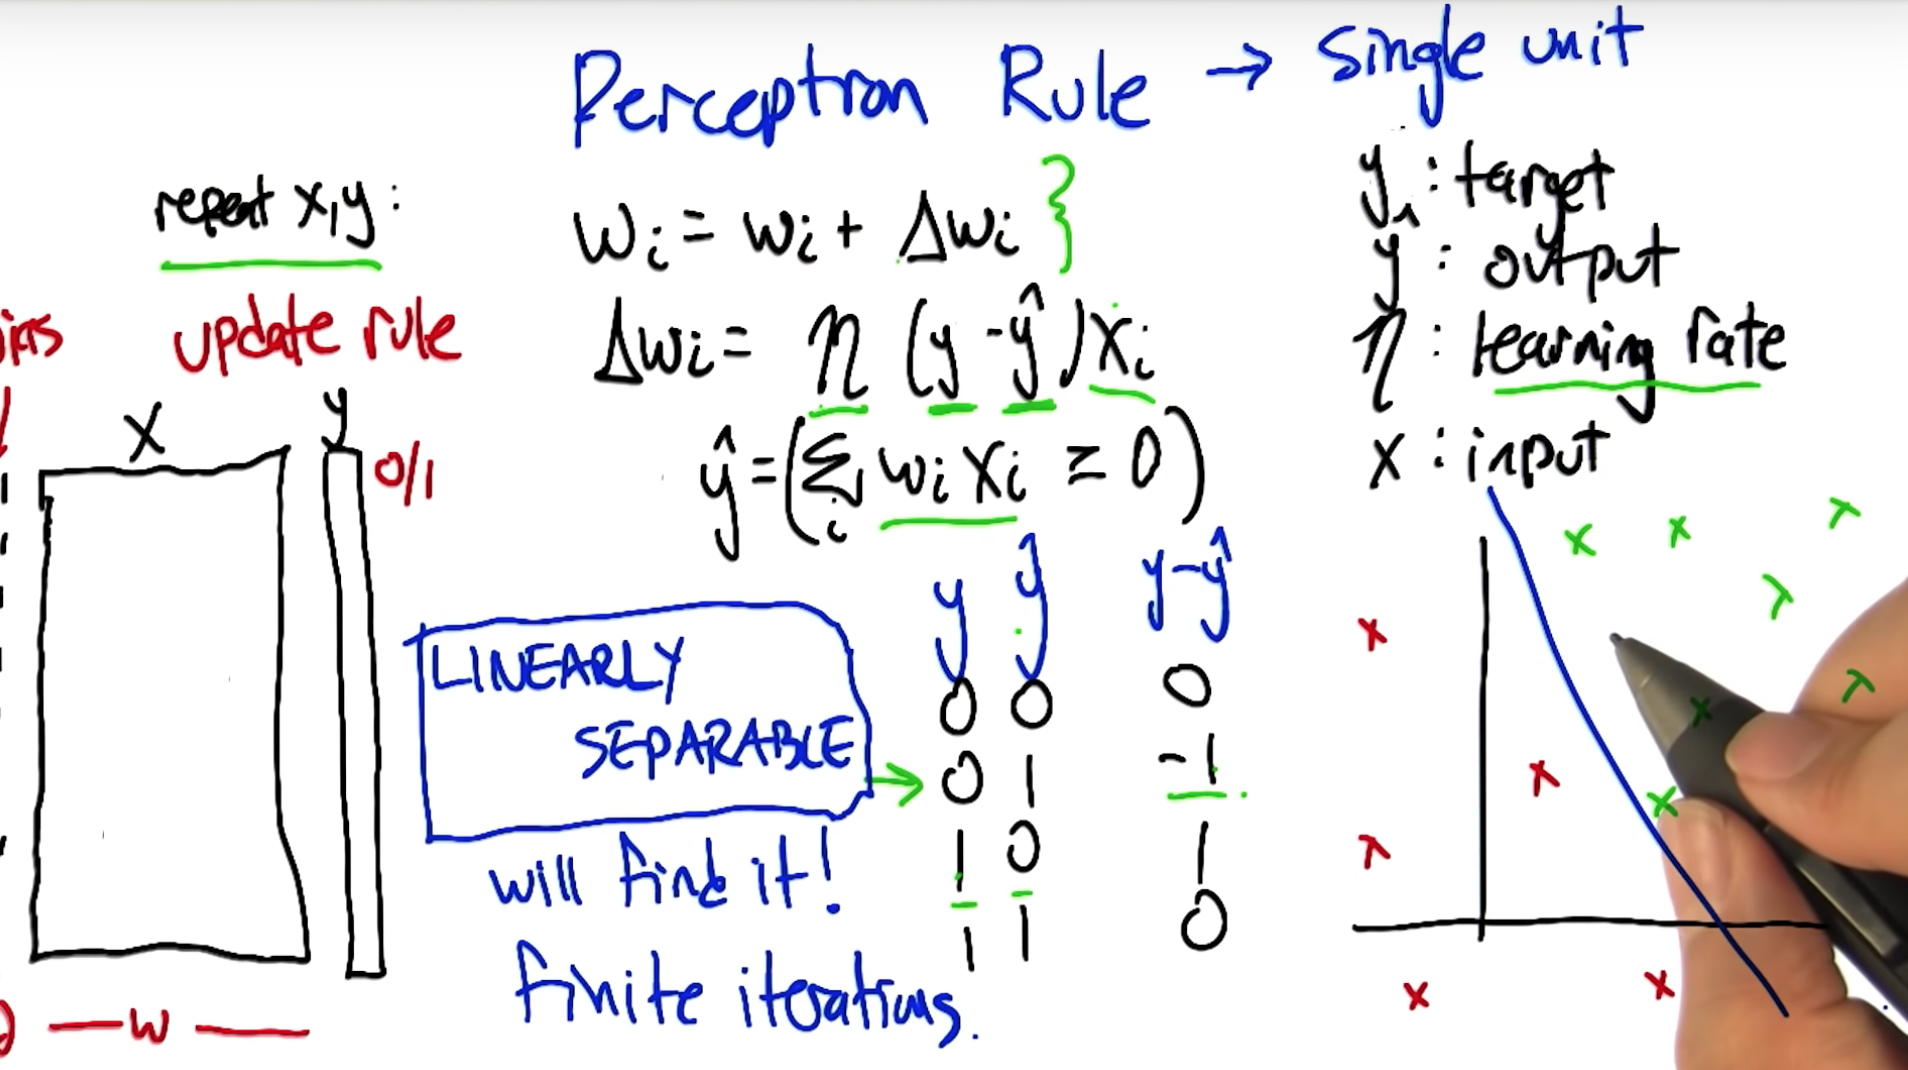 Perceptron Rule → single unit
repeat x,y:
update rule
x
y
0/1
w
wi = wi + Δwi }
Δwi = η (y - ŷ) xi
ŷ = (Σi wi xi ≥ 0)
y : target
ŷ : output
η : learning rate
x : input
LINEARLY
SEPARABLE
will find it!
finite iterations.
y ŷ y-ŷ
0 0 0
→ 0 1 -1
1 0 1
1 1 0